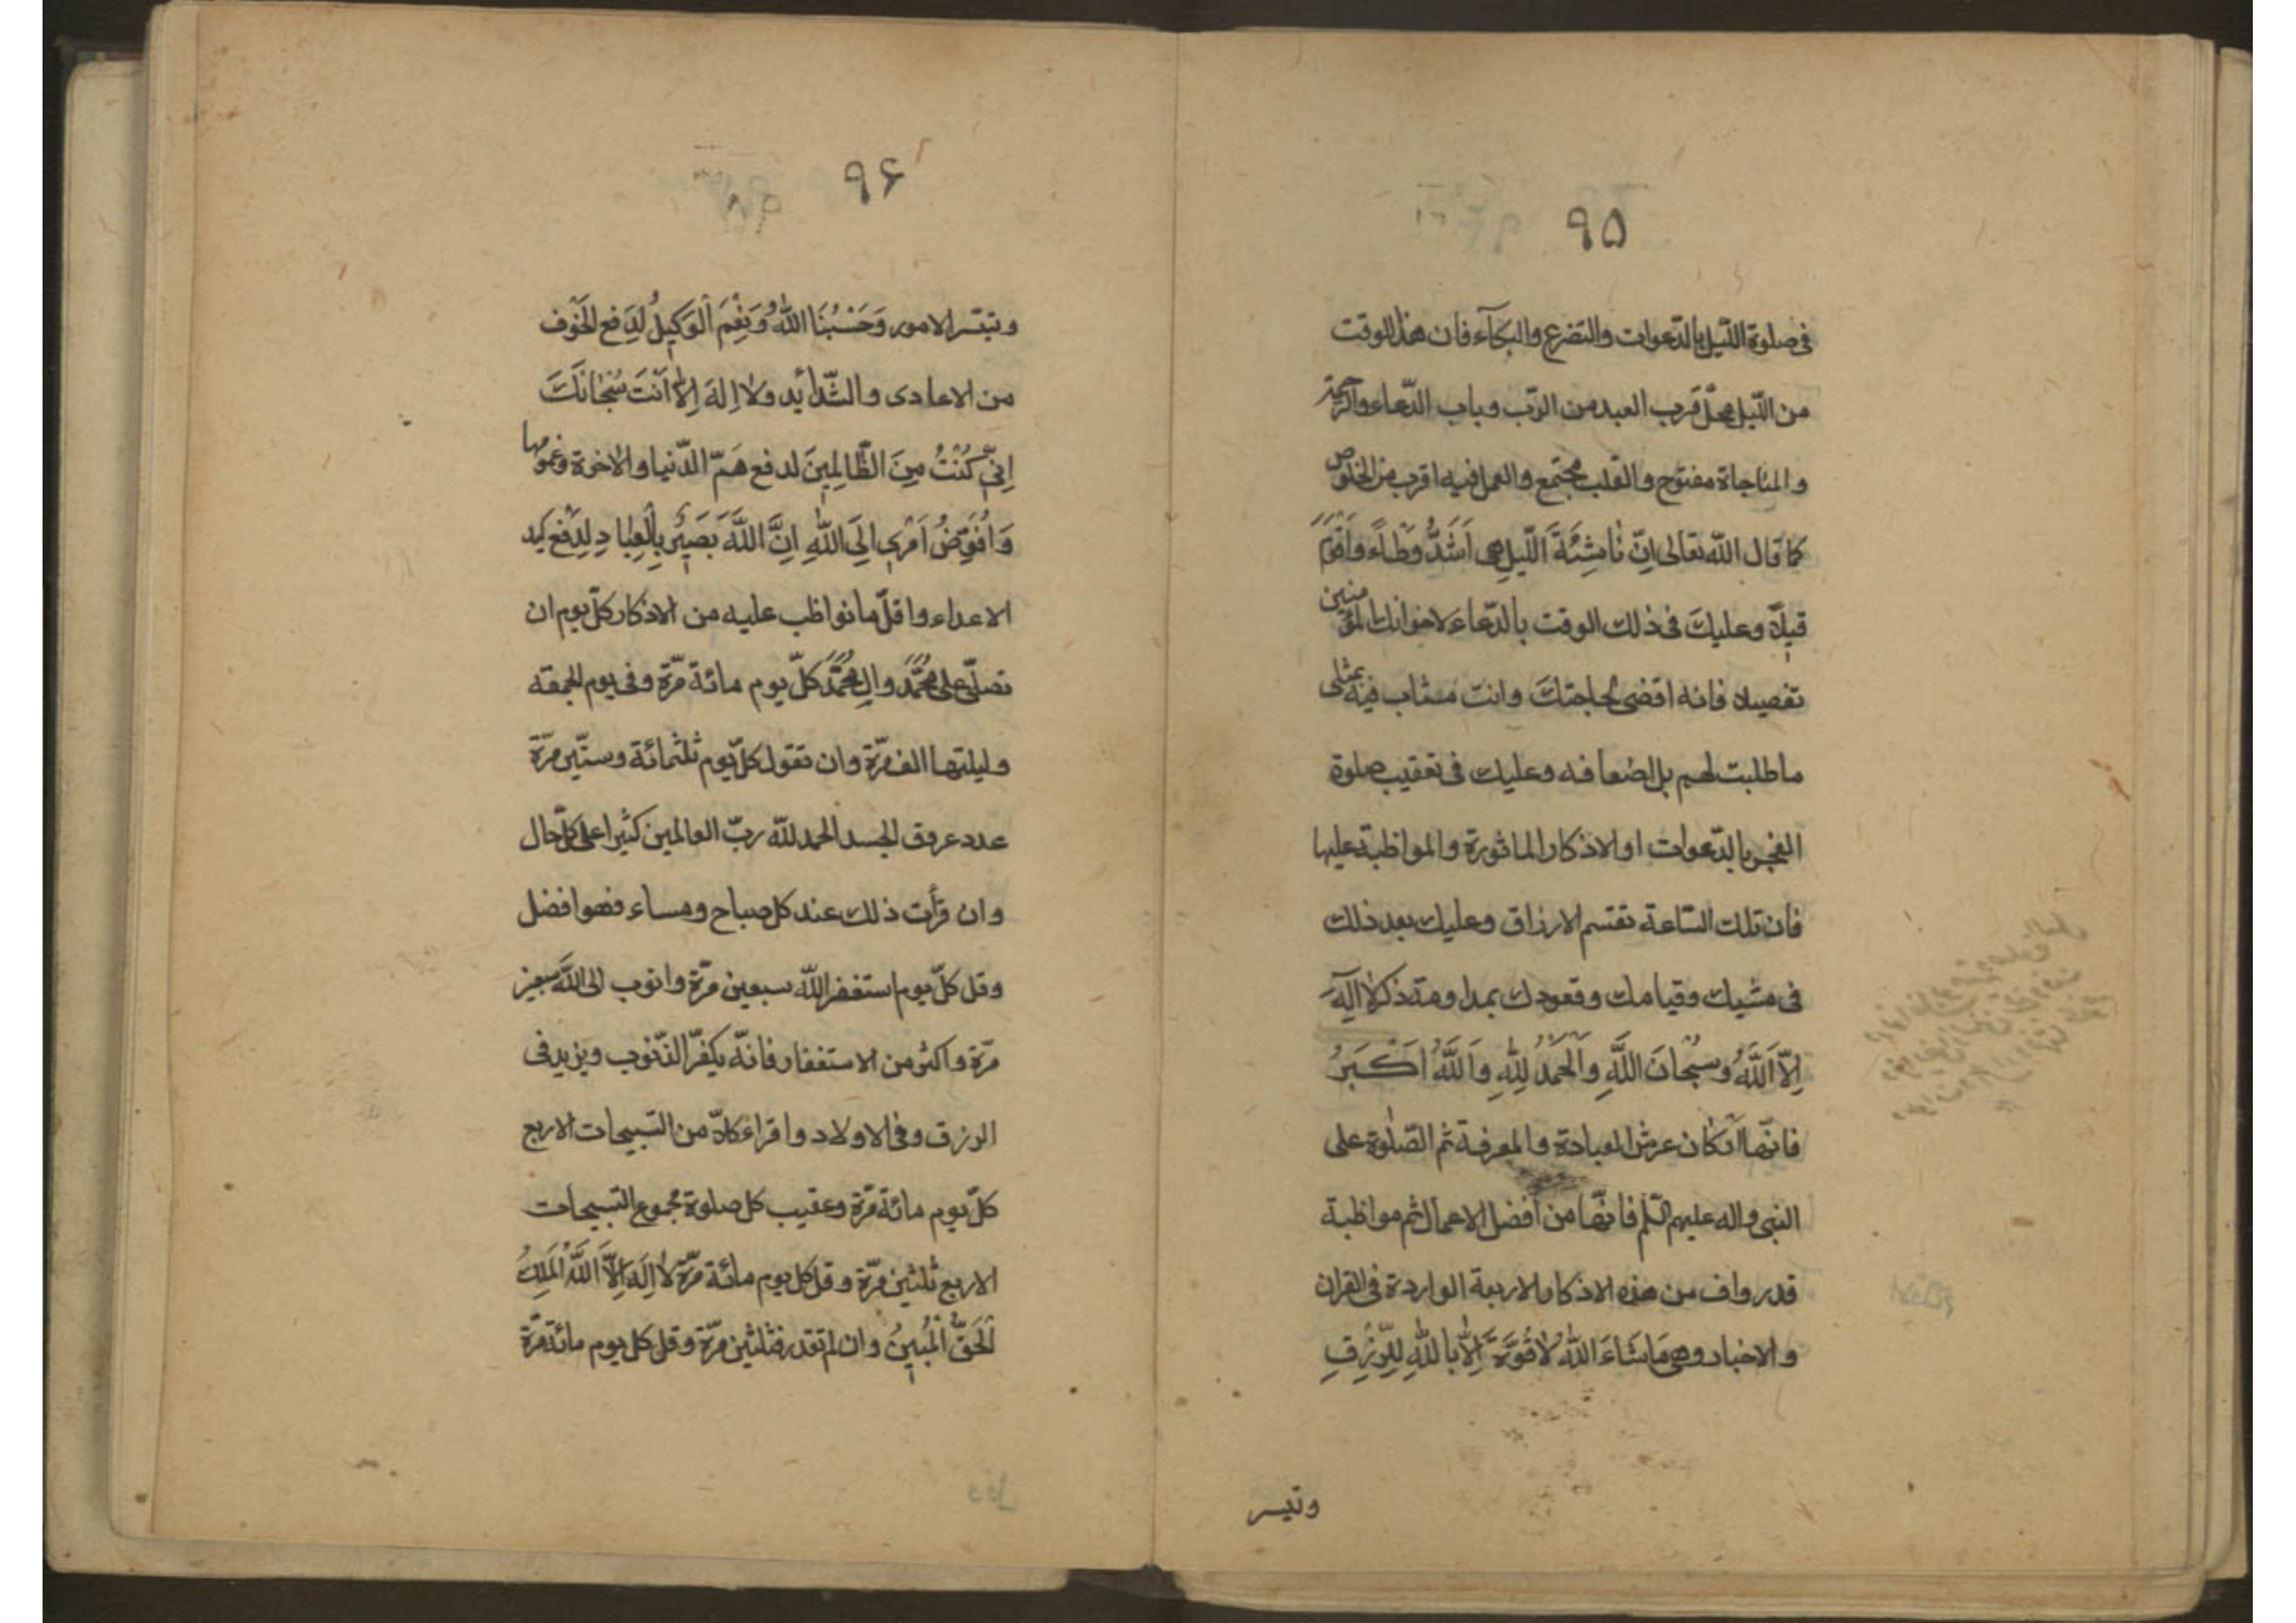 ۹۵
في صلوة اللّيل بالدّعوات والتضرع والبكآء فان هذا الوقت
من اللّيل محلّ قرب العبد من الرّب وباب الدّعاء والرحمة
والمناجاة مفتوح والقلب مجتمع والعمل فيه اقرب من الخلوص
كما قال اللّه تعالى اِنّ نٰاشِئَةَ اللّيلِ هى اَشَدُّ وَطْاًء واَقْوَمُ
قيلاً وعليكَ فى ذلك الوقت بالدّعاء لاخوانك المؤمنين
تفصيلا فانه اقضى لحاجتكَ وانت مثاب فيه بمثلى
ما طلبت لهم بل اضعافه وعليك فى تعقيب صلوة
الفجر بالدّعوات او الاذكار الماثورة والمواظبة عليها
فان تلك السّاعة تقتسم الارزاق وعليك بعد ذلك
فى مشيك وقيامك وقعودك بمداومة ذكر لا اِلٓهَ
اِلاّ اَللَّهُ وسُبْحانَ اللَّهِ واَلْحَمْدُ لِلّٰهِ وَاَللَّهُ اَكْبَرُ
فانّها اركان عرش العبادة والمعرفة ثم الصّلوة على
النبى واله عليهم السّلم فانّها من أفضل الاعمال ثم مواظبة
قدر واف من هذه الاذكار الاربعة الواردة فى القران
والاخبار وهى مَا شَاءَ اللّٰهُ لاٰ قُوَّةَ اِلاّٰ بِاللّٰهِ لِلرِّزْقِ
وتيسر
۹۶
وتيسر الامور وَحَسْبُنَا اللّٰهُ وَنِعْمَ اَلْوَكيلُ لِدَفع الخَوْف
من الاعادى والشّدائد ولاٰ اِلهَ اِلاّٰ اَنْتَ سُبْحٰانَكَ
اِنّى كُنْتُ مِنَ الظّٰالِمينَ لدفع هَمّ الدّنيا والاخرة وغمومها
وَاُفَوِّضُ اَمْرى اِلَى اللّٰهِ اِنَّ اللَّهَ بَصيٌر بِالْعِبٰادِ لِدَفْع كيد
الاعداء واقلّ ما نواظب عليه من الاذكار كلّ يوم ان
تصلّى على مُحَمَّدٍ والِ مُحَمَّدٍ كلّ يوم مائة مرّة وفى يوم الجمعة
وليلتها الف مرّة وان تقول كلّ يوم ثلثمائة وستّين مرّة
عدد عروق الجسد الحمد للّه ربّ العالمين كثيرا على كلّ حال
وان قرأت ذلك عند كل صباح ومساء فهو افضل
وقل كلّ يوم استغفر اللّه سبعين مرّة واتوب الى اللّه سبعين
مرّة واكثر من الاستغفار فانّه يكفّر الذّنوب ويزيد فى
الرزق وفى الاولاد واقراء كلاّ من التسبيحات الاربع
كلّ يوم مائة مرّة وعقيب كل صلوة مجموع التسبيحات
الاربع ثلثين مرّة وقل كل يوم مائة مرّة لاٰ اِلَهَ اِلاَّ اَللّٰهُ اَلْمَلِكُ
اَلْحَقُّ اَلْمُبينُ وان لم تقدر فثلثين مرّة وقل كل يوم مائة مرّة